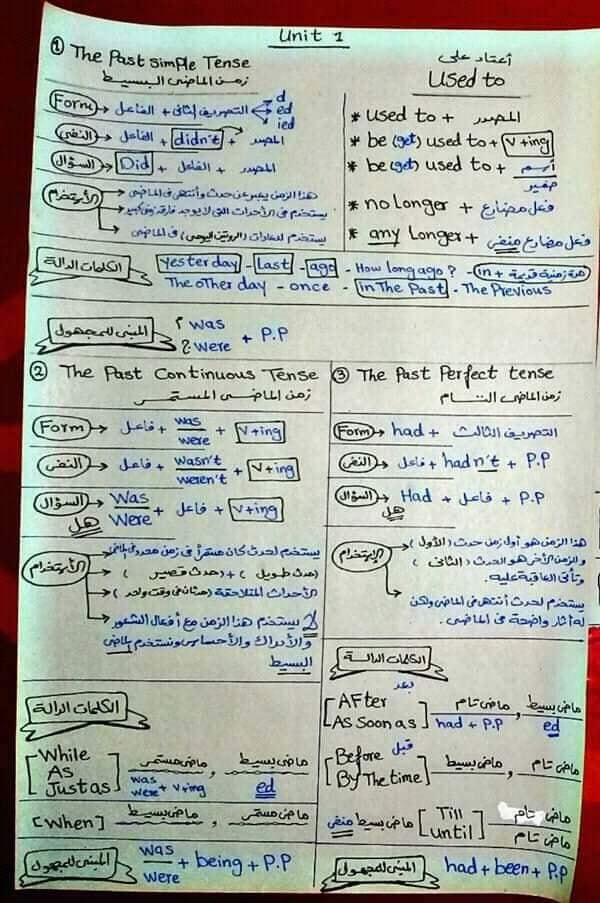 Unit 1
① The Past simple Tense
زمن الماضى البسيط
Form → الفاعل + التصريف الثانى → d
ed
ied
النفى → الفاعل + didn't + المصدر
السؤال → Did + الفاعل + المصدر
الأستخدام → هذا الزمن يعبر عن حدث وأنتهى فى الماضى
يستخدم فى الأحداث التى لا يوجد فارق زمنى كبير
يستخدم للعادات (الروتين اليومى) فى الماضى
أعتاد على
Used to
* used to + المصدر
* be (get) used to + v+ing
* be (get) used to + أسم
ضمير
* no longer + فعل مضارع
* any Longer + فعل مضارع منفى
الكلمات الدالة
yesterday - Last - ago - How long ago? - in + مدة زمنية قديمة
The other day - once - in The Past - The Previous
المبنى للمجهول
was
were + P.P
② The Past Continuous Tense
زمن الماضى المستمر
Form → فاعل + was
were + v+ing
النفى → فاعل + wasn't
weren't + v+ing
السؤال → Was
Were + فاعل + v+ing
هل
الأستخدام → يستخدم لحدث كان مستمرآ فى زمن محدد فى الماضى
(حدث طويل) + (حدث قصير)
الأحداث المتلاحقة (حدثان فى وقت واحد)
لا يستخدم هذا الزمن مع أفعال الشعور
والأدراك والأحساس ونستخدم ماضى
البسيط
الكلمات الدالة
[While
As
Just as] ماضى مستمر , ماضى بسيط
was
were + v+ing
ed
[When] ماضى بسيط , ماضى مستمر
المبنى للمجهول
was
were + being + P.P
③ The Past Perfect tense
زمن الماضى التام
Form → had + التصريف الثالث
النفى → فاعل + hadn't + P.P
السؤال → Had + فاعل + P.P
هل
الإستخدام → هذا الزمن هو أول زمن حدث (الأول)
والزمن الأخر هو الحدث (الثانى)
وتأتى العاقبة عليه.
يستخدم لحدث أنتهى فى الماضى ولكن
له أثار واضحة فى الماضى.
الكلمات الدالة
بعد
[After
As Soon as] ماضى تام , ماضى بسيط
had + P.P
ed
قبل
[Before
By The time] ماضى بسيط , ماضى تام
ماضى بسيط منفى [Till
until] ماضى تام
ماضى تام
المبنى للمجهول
had + been + P.P